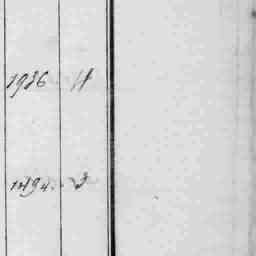 1926 11
1494 3